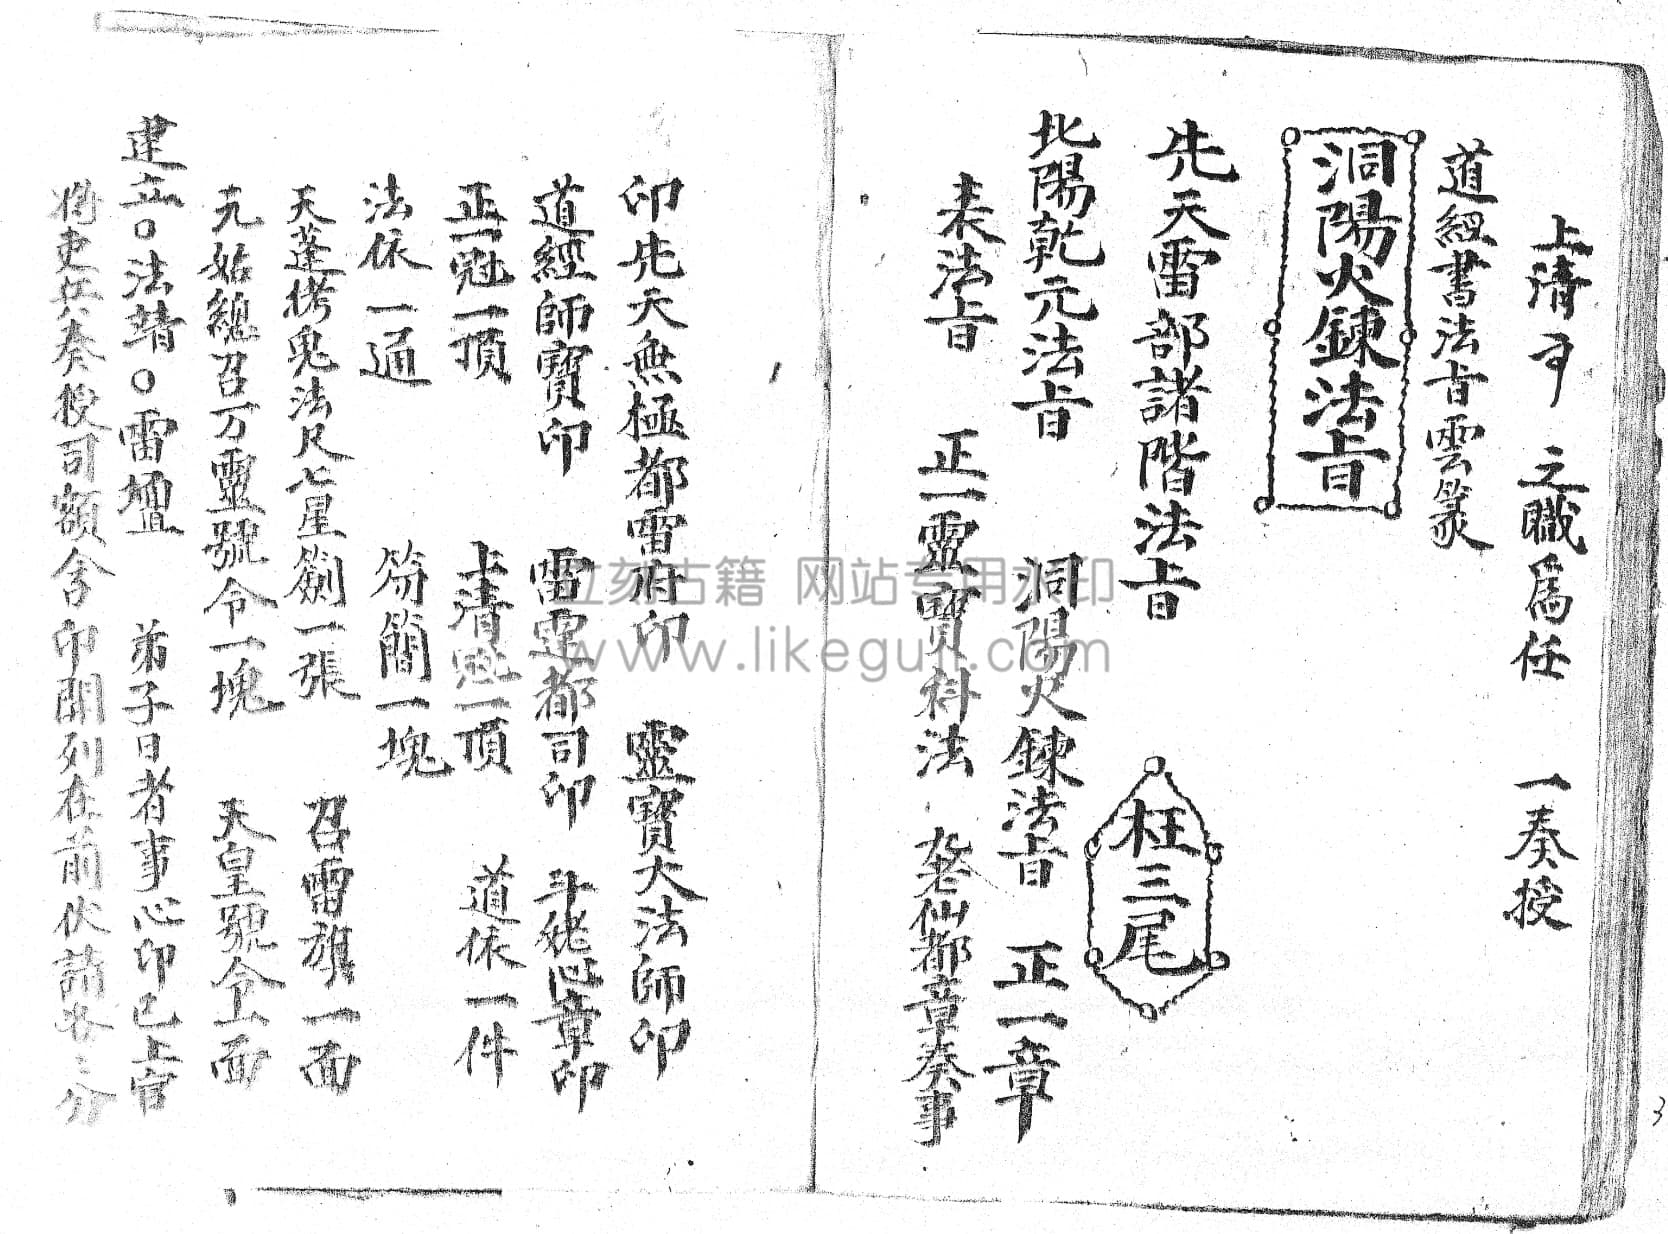 上清 之職爲任 一奏授
道經書法旨雲篆
洞陽火錬法旨
先天雷部諸階法旨
枉三尾
北陽乾元法旨 洞陽火錬法旨 正一章
表法旨 正一靈寳科法 仙都章奏事
印先天無極都雷府印 靈寳大法師印
道經師寳印 雷霆都司印 斗姥心章印
正一冠一頂 上清冠一頂 道依一件
法依一通 笏簡一塊
天蓬拷鬼法尺七星劍一張 召雷旗一面
元始總召万靈號令一塊 天皇號令一面
建立〇法靖〇雷壇 弟子日者事心印已上官
將吏兵奏授司額含印開列在前伏請 分
立刻古籍 网站专用水印
www.likeguji.com
3